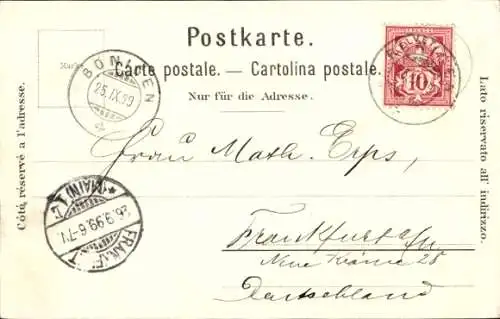 Postkarte.
Marke
Carte postale. — Cartolina postale.
Nur für die Adresse.
Côté réservé à l'adresse.
Lato riservato all' indirizzo.
BÖNIGEN
25.IX.99
HELVETIA
10
Frau Math. Erps,
Frankfurt a/m
Neue Kräme 28
Deutschland
FRANKFURT (MAIN) 1
26.9.99.6-7